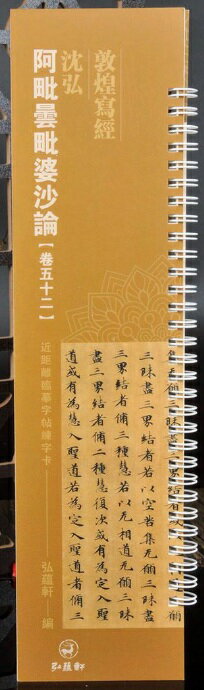 敦煌寫經
沈弘
阿毗曇毗婆沙論【卷五十二】
三昧盡三界結者若以空苦集无願三昧盡
三界結者修三慧若以无相道无願三昧
盡三界結者修二種慧復次或有為定入聖
道或有為慧入聖道若為定入聖道者修三
近距離臨摹字帖練字卡 弘蘊軒 編
弘蘊軒